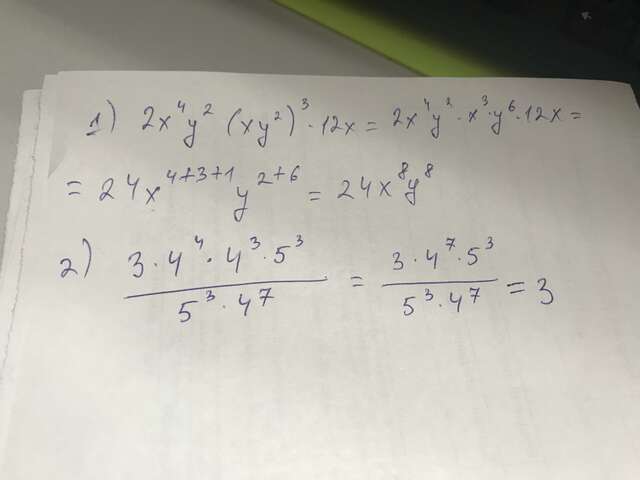 1) 2x⁴y² (xy²)³ · 12x = 2x⁴y² · x³ · y⁶ · 12x =
= 24x⁴⁺³⁺¹ y²⁺⁶ = 24x⁸y⁸
2) 3 · 4⁴ · 4³ · 5³ / 5³ · 4⁷ = 3 · 4⁷ · 5³ / 5³ · 4⁷ = 3